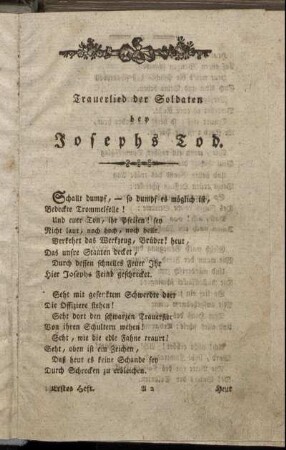 Trauerlied der Soldaten
bey
Josephs Tod.
Schallt dumpf, — so dumpf es möglich ist,
Bedeckte Trommelfelle!
Und euer Ton, ihr Pfeifen! sey
Nicht laut, noch hoch, noch helle.
Verkehrt das Werkzeug, Brüder! heut,
Das unsre Staaten decket,
Durch dessen schnelles Feuer Ihr
Hier Josephs Feind geschrecket.
Seht mit gesenktem Schwerdte dort
Die Offiziere stehen!
Seht dort den schwarzen Trauerflor
Von ihren Schultern wehen!
Seht, wie die edle Fahne trauert!
Seht, oben ist ein Zeichen,
Daß heut es keine Schande sey
Durch Schrecken zu erbleichen.
Erstes Heft. A 2 Heut